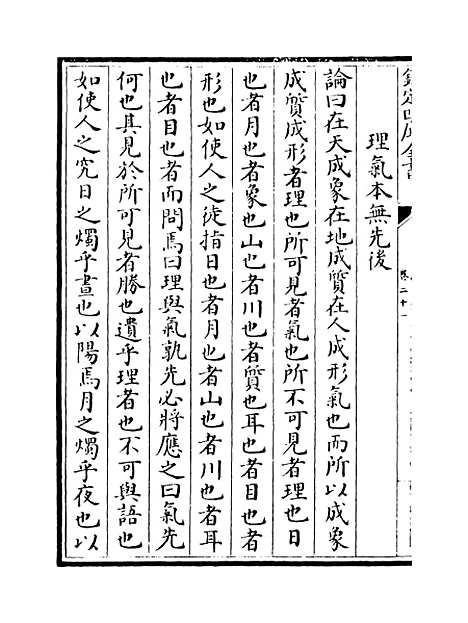 欽定四庫全書
卷二十一
理氣本無先後
論曰在天成象在地成質在人成形氣也而所以成象
成質成形者理也所可見者氣也所不可見者理也日
也者月也者象也山也者川也者質也耳也者目也者
形也如使人之徒指日也者月也者山也者川也者耳
也者目也者而問焉曰理與氣孰先必將應之曰氣先
何也其見於所可見者勝也遺乎理者也不可與語也
如使人之究日之燭乎晝也以陽焉月之燭乎夜也以